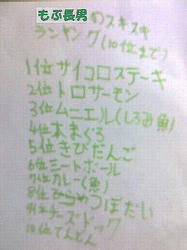 もぶ長男のスキスキ
ランキング(10位まで)
1位サイコロステーキ
2位トロサーモン
3位ムニエル(しろみ魚)
4位本まぐろ
5位きびだんご
6位ミートボール
7位カレー(魚)
8位
9位チーズドック
10位てんどん